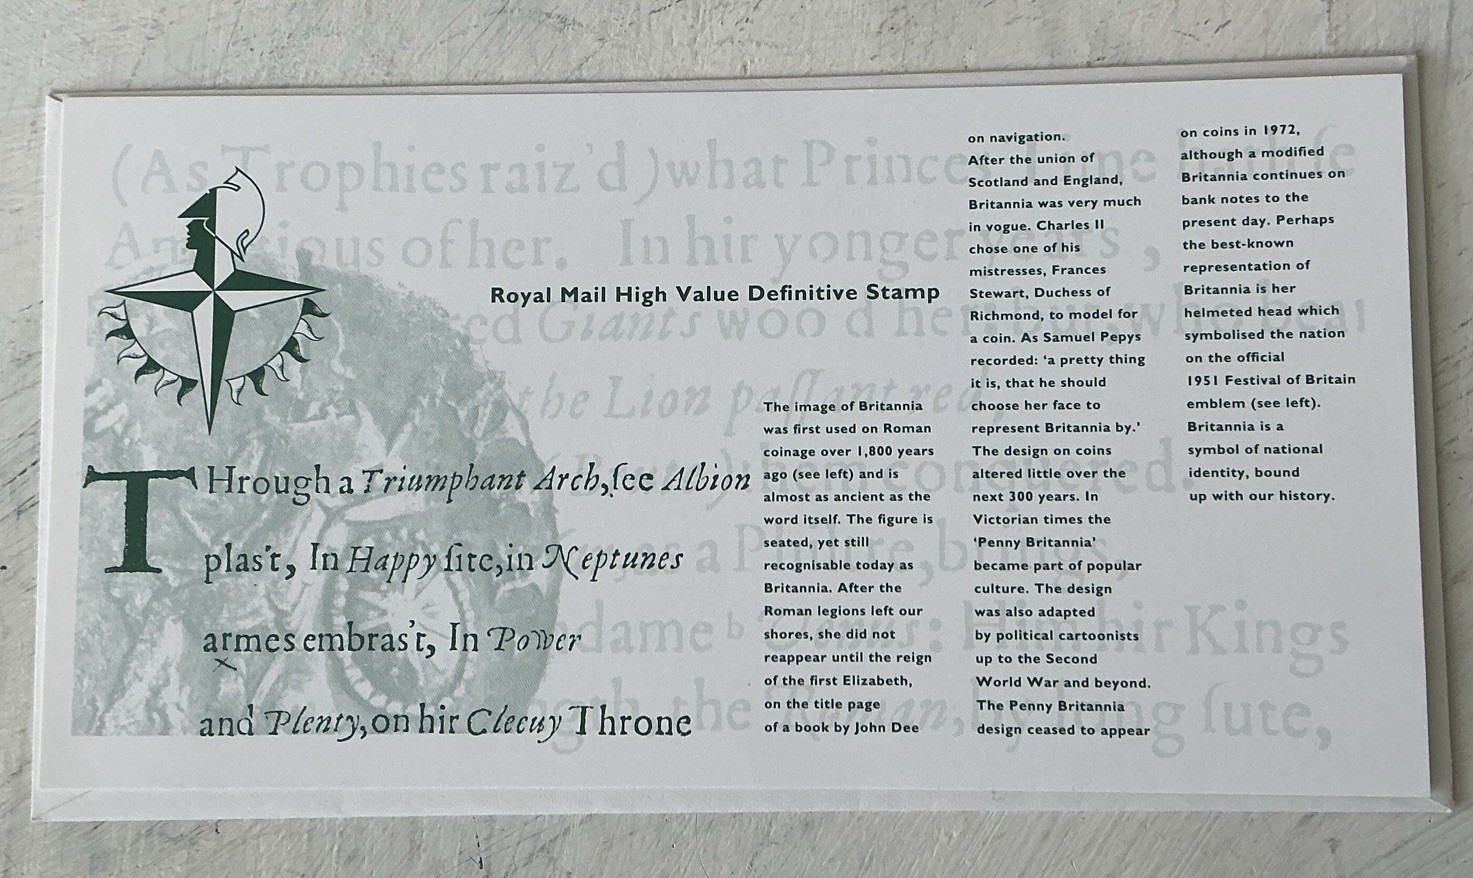 (As Trophies raiz'd) what Princes
Ambitious of her. In hir yonger years,
Giants
the Lion passant red
Kings
long sute,
Royal Mail High Value Definitive Stamp
THrough a Triumphant Arch, see Albion
plas't, In Happy site, in Neptunes
armes embras't, In Power
and Plenty, on hir Cleeuy Throne
The image of Britannia
was first used on Roman
coinage over 1,800 years
ago (see left) and is
almost as ancient as the
word itself. The figure is
seated, yet still
recognisable today as
Britannia. After the
Roman legions left our
shores, she did not
reappear until the reign
of the first Elizabeth,
on the title page
of a book by John Dee
on navigation.
After the union of
Scotland and England,
Britannia was very much
in vogue. Charles II
chose one of his
mistresses, Frances
Stewart, Duchess of
Richmond, to model for
a coin. As Samuel Pepys
recorded: ‘a pretty thing
it is, that he should
choose her face to
represent Britannia by.’
The design on coins
altered little over the
next 300 years. In
Victorian times the
‘Penny Britannia’
became part of popular
culture. The design
was also adapted
by political cartoonists
up to the Second
World War and beyond.
The Penny Britannia
design ceased to appear
on coins in 1972,
although a modified
Britannia continues on
bank notes to the
present day. Perhaps
the best-known
representation of
Britannia is her
helmeted head which
symbolised the nation
on the official
1951 Festival of Britain
emblem (see left).
Britannia is a
symbol of national
identity, bound
up with our history.